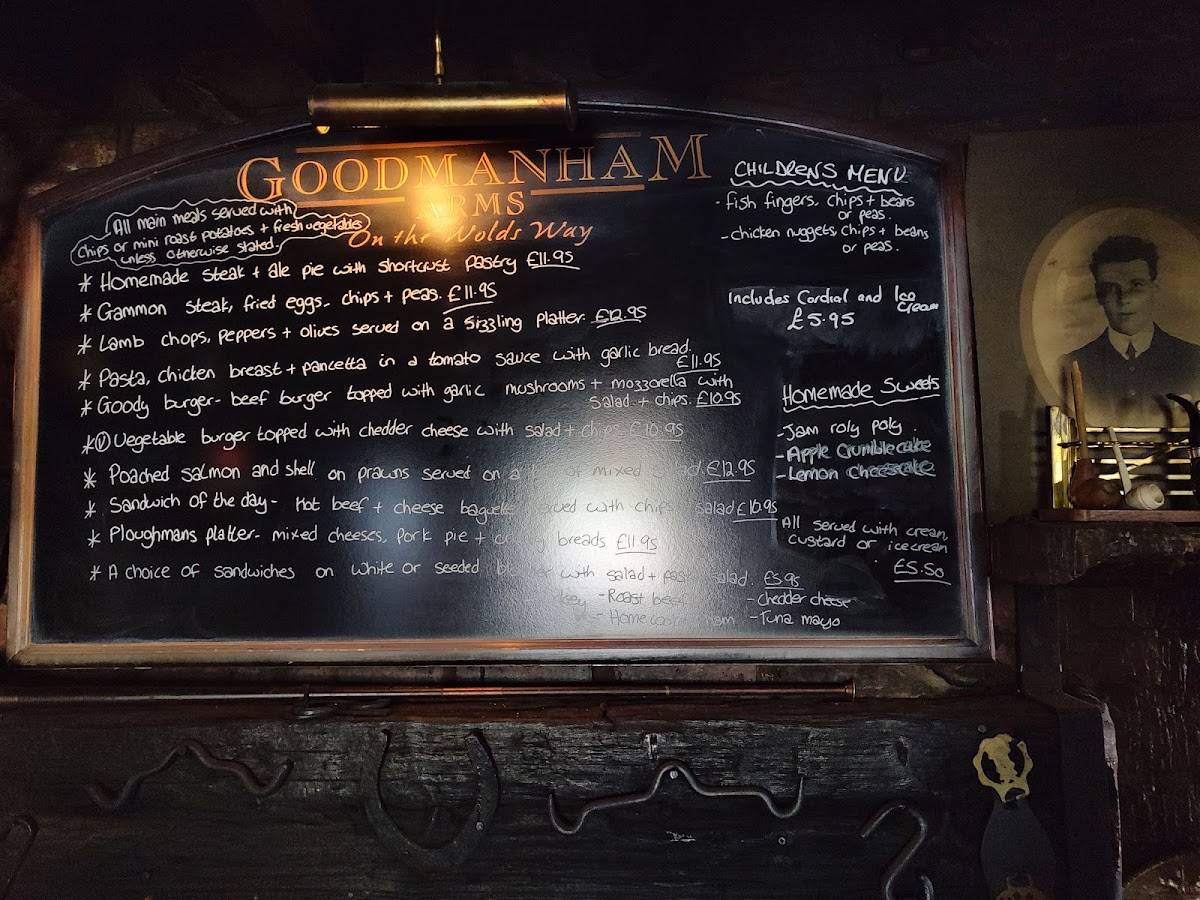 GOODMANHAM
ARMS
On the Wolds Way
All main meals served with
chips or mini roast potatoes + fresh vegetables
unless otherwise stated.
* Homemade steak + ale pie with shortcrust pastry £11.95
* Gammon steak, fried eggs - chips + peas. £11.95
* Lamb chops, peppers + olives served on a sizzling platter. £12.95
* Pasta, chicken breast + pancetta in a tomato sauce with garlic bread.
£11.95
* Goody burger - beef burger topped with garlic mushrooms + mozzorella with
salad + chips. £10.95
* (V) Vegetable burger topped with chedder cheese with salad + chips £10.95
* Poached salmon and shell on prawns served on a of mixed salad. £12.95
* Sandwich of the day - Hot beef + cheese baguette served with chips salad £10.95
* Ploughmans platter - mixed cheeses, pork pie + breads £11.95
* A choice of sandwiches on white or seeded with salad + salad. £5.95
- Roast beef - chedder cheese
- Home cooked ham - Tuna mayo
CHILDRENS MENU
- fish fingers, chips + beans
or peas.
- chicken nuggets, chips + beans
or peas.
Includes Cordial and Ice
Cream
£5.95
Homemade Sweets
- Jam roly poly.
- Apple Crumble cake
- Lemon Cheesecake
All served with cream,
custard or icecream
£5.50